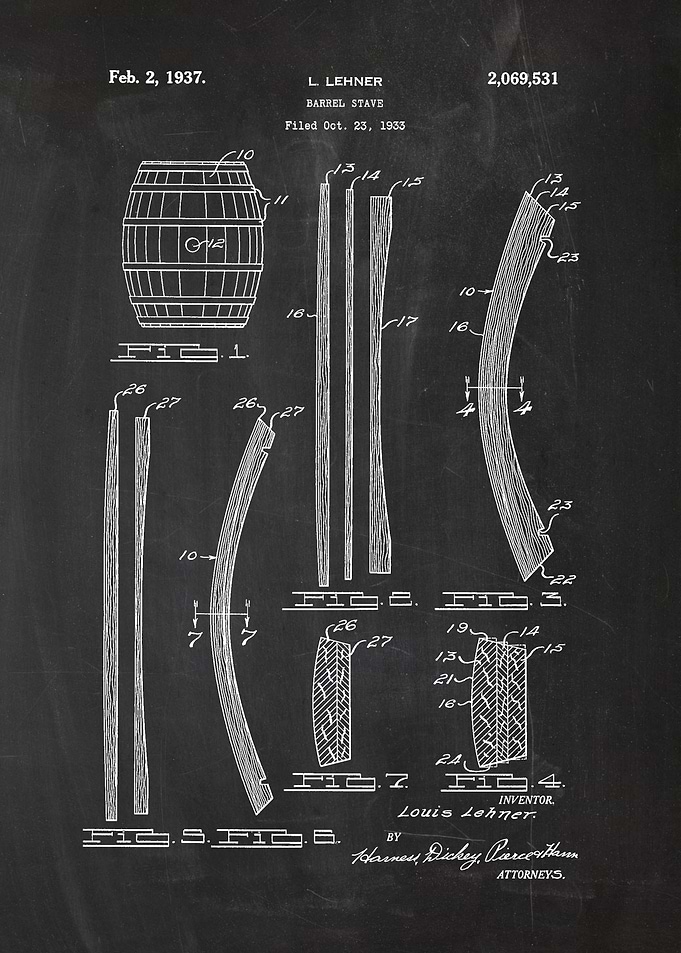 Feb. 2, 1937.
L. LEHNER
2,069,531
BARREL STAVE
Filed Oct. 23, 1933
10
11
12
FIG. 1.
13
14
15
16
17
FIG. 2.
13
14
15
23
10
16
4
4
23
22
FIG. 3.
26
27
FIG. 5.
26
27
10
7
7
FIG. 6.
26
27
FIG. 7.
19
14
13
15
21
16
24
FIG. 4.
INVENTOR.
Louis Lehner.
BY
Harness, Dickey, Pierce & Hann
ATTORNEYS.